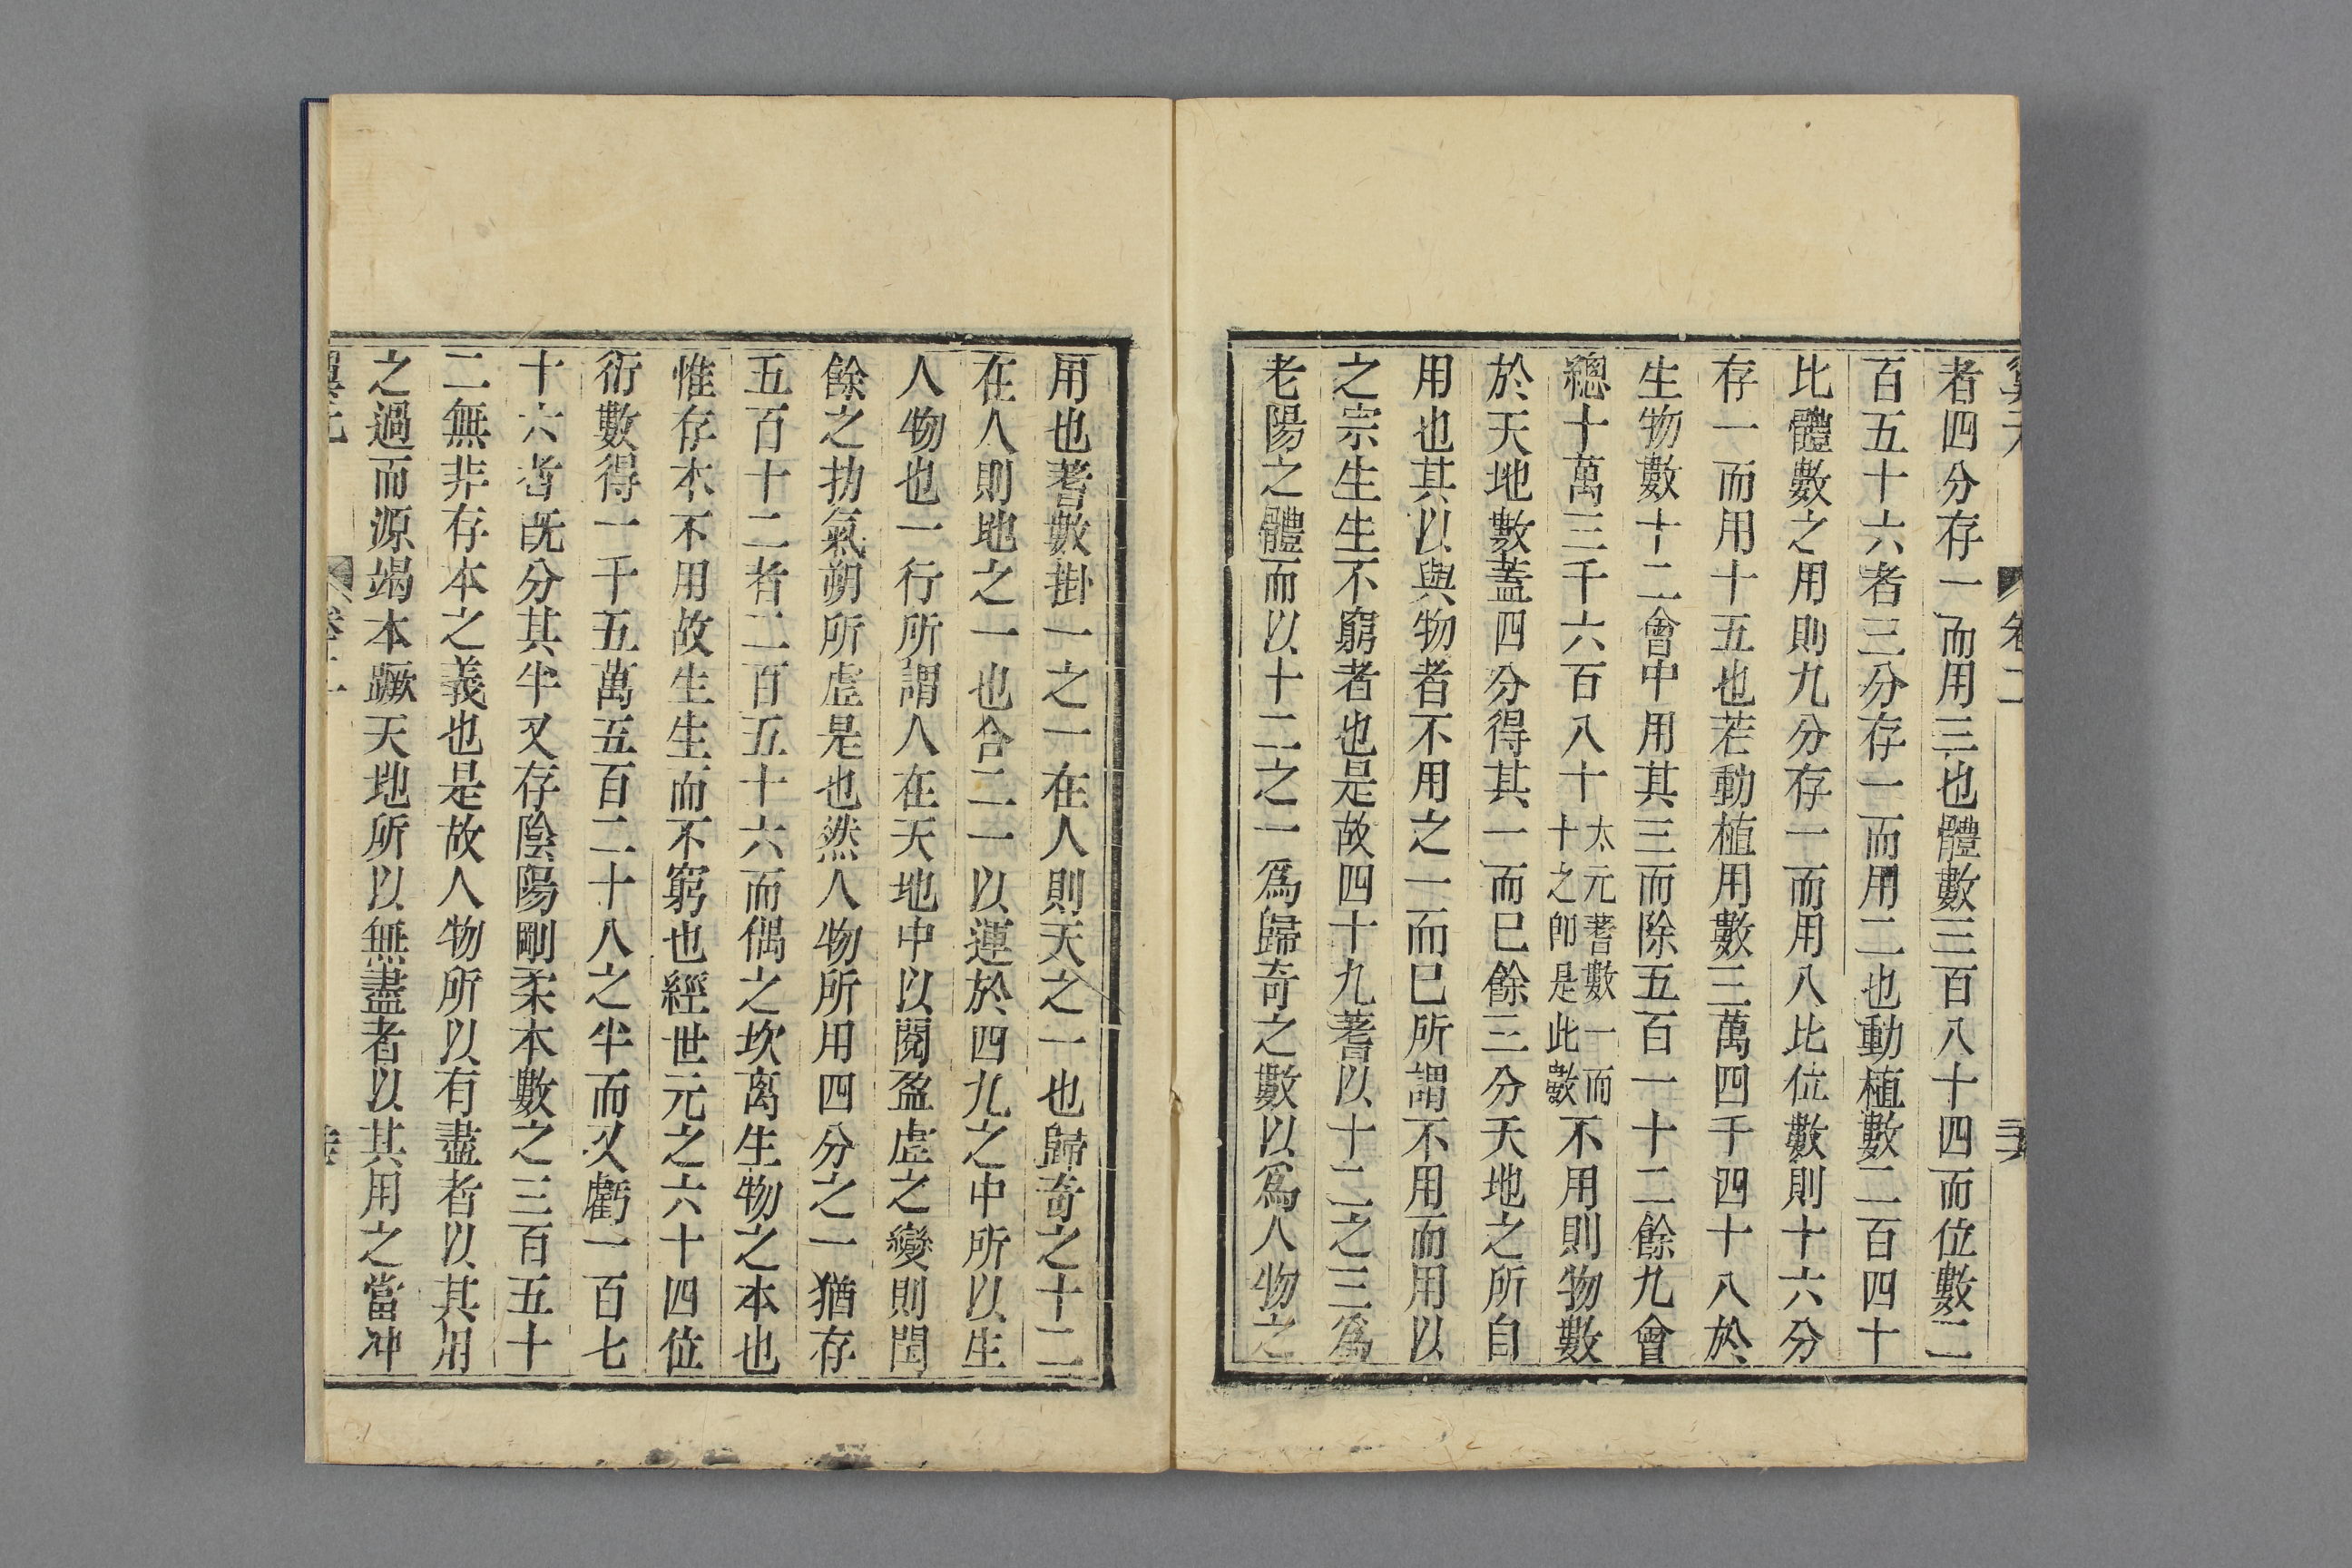 者四分存一而用三也體數三百八十四而位數二
百五十六者三分存一而用二也動植數二百四十
比體數之用則九分存一而用八比位數則十六分
存一而用十五也若動植用數三萬四千四十八於
生物數十二會中用其三而除五百一十二餘九會
總十萬三千六百八十太元蓍數一而十之卽是此數不用則物數
於天地數蓋四分得其一而巳餘三分天地之所自
用也其以與物者不用之一而巳所謂不用而用以
之宗生生不窮者也是故四十九蓍以十二之三爲
老陽之體而以十二之一爲歸奇之數以爲人物之
用也蓍數掛一之一在人則天之一也歸奇之十二
在人則地之一也合二一以運於四九之中所以生
人物也一行所謂人在天地中以閱盈虛之變則閏
餘之扐氣朔所虛是也然人物所用四分之一猶存
五百十二者二百五十六而偶之坎离生物之本也
惟存本不用故生生而不窮也經世元之六十四位
衍數得一千五萬五百二十八之半而又虧一百七
十六者旣分其半又存陰陽剛柔本數之三百五十
二無非存本之義也是故人物所以有盡者以其用
之過而源竭本蹶天地所以無盡者以其用之當冲